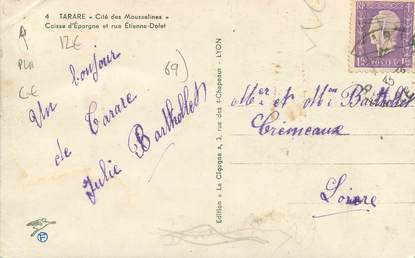 4 TARARE « Cité des Mousselines »
Caisse d'Épargne et rue Étienne-Dolet
12€
69)
Un bonjour
de Tarare
Julie Barthollet
Édition « La Cigogne », 3, rue des 4-Chapeaux - LYON
Mer et Mme Barthollet
Crémeaux
Loire